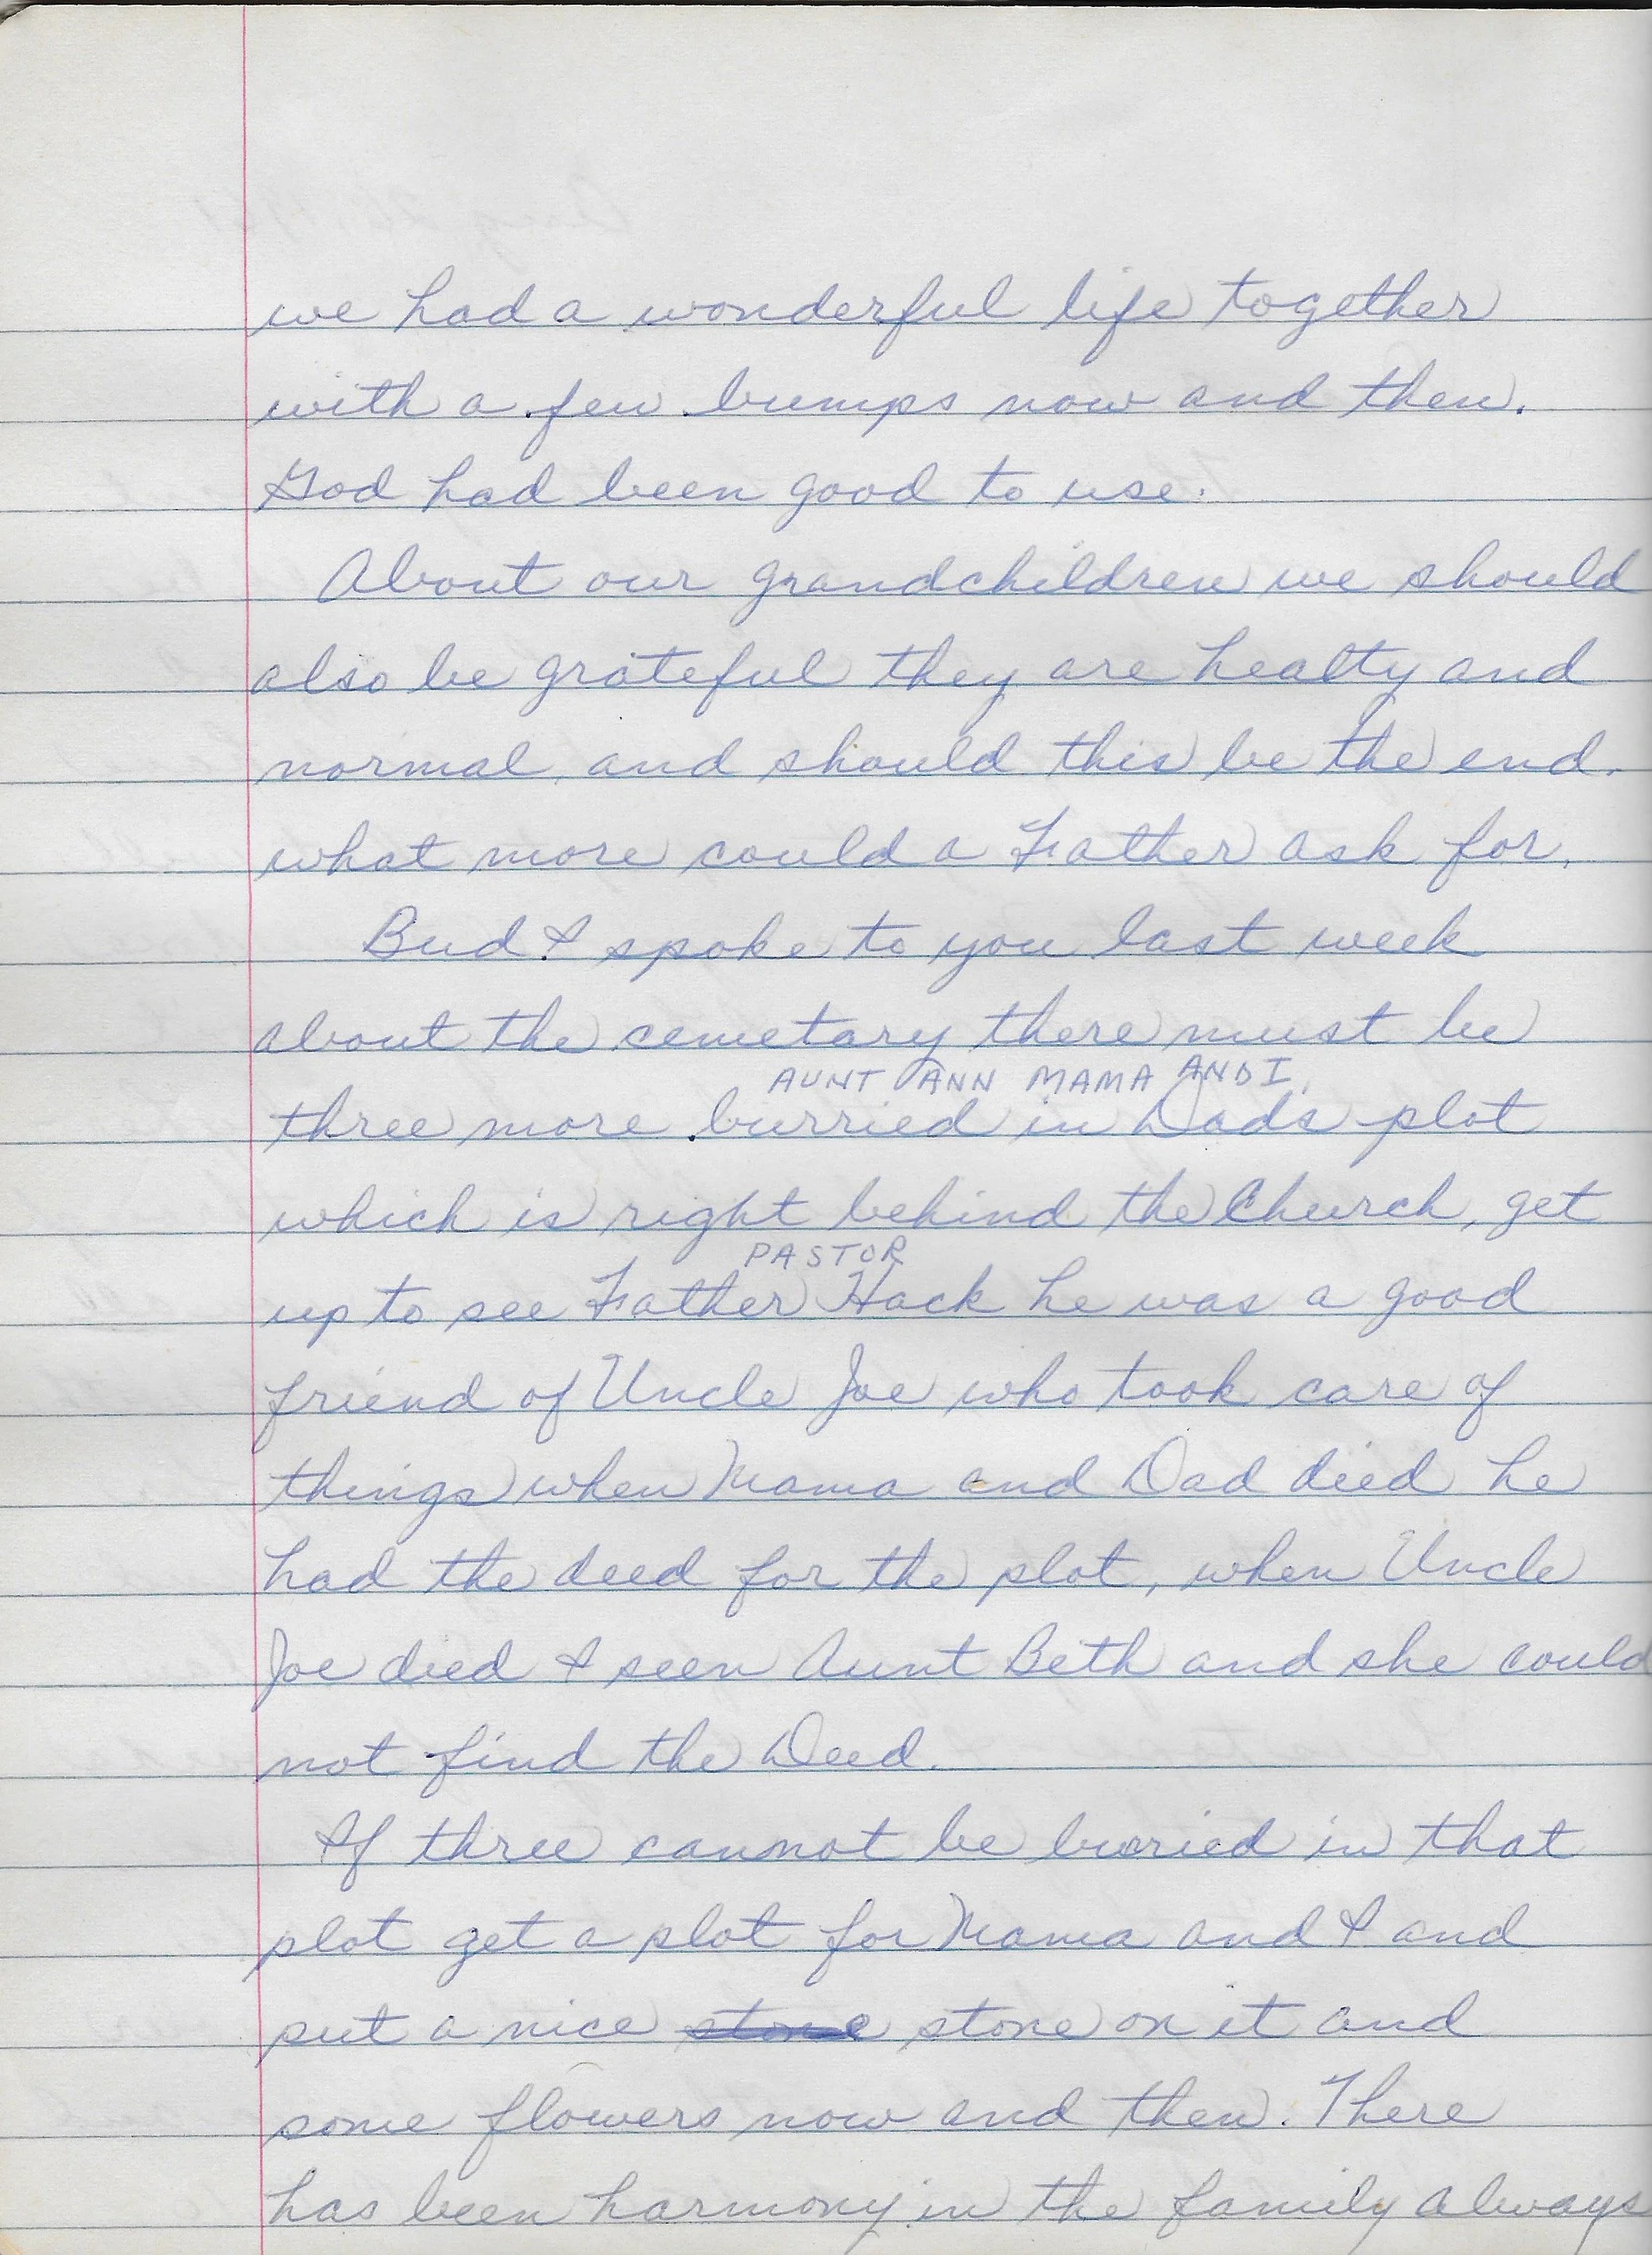 we had a wonderful life together
with a few bumps now and then.
God had been good to use.
About our grandchildren we should
also be grateful they are healty and
normal, and should this be the end.
what more could a Father ask for.
Bud I spoke to you last week
about the cemetary there must be
AUNT ANN MAMA AND I.
three more burried in Dads plot
which is right behind the Church, get
PASTOR
up to see Father Hack he was a good
friend of Uncle Joe who took care of
things when Mama and Dad died he
had the deed for the plot, when Uncle
Joe died I seen Aunt Beth and she could
not find the Deed.
If three cannot be buried in that
plot get a plot for Mama and I and
put a nice stone stone on it and
some flowers now and then. There
has been harmony in the family always